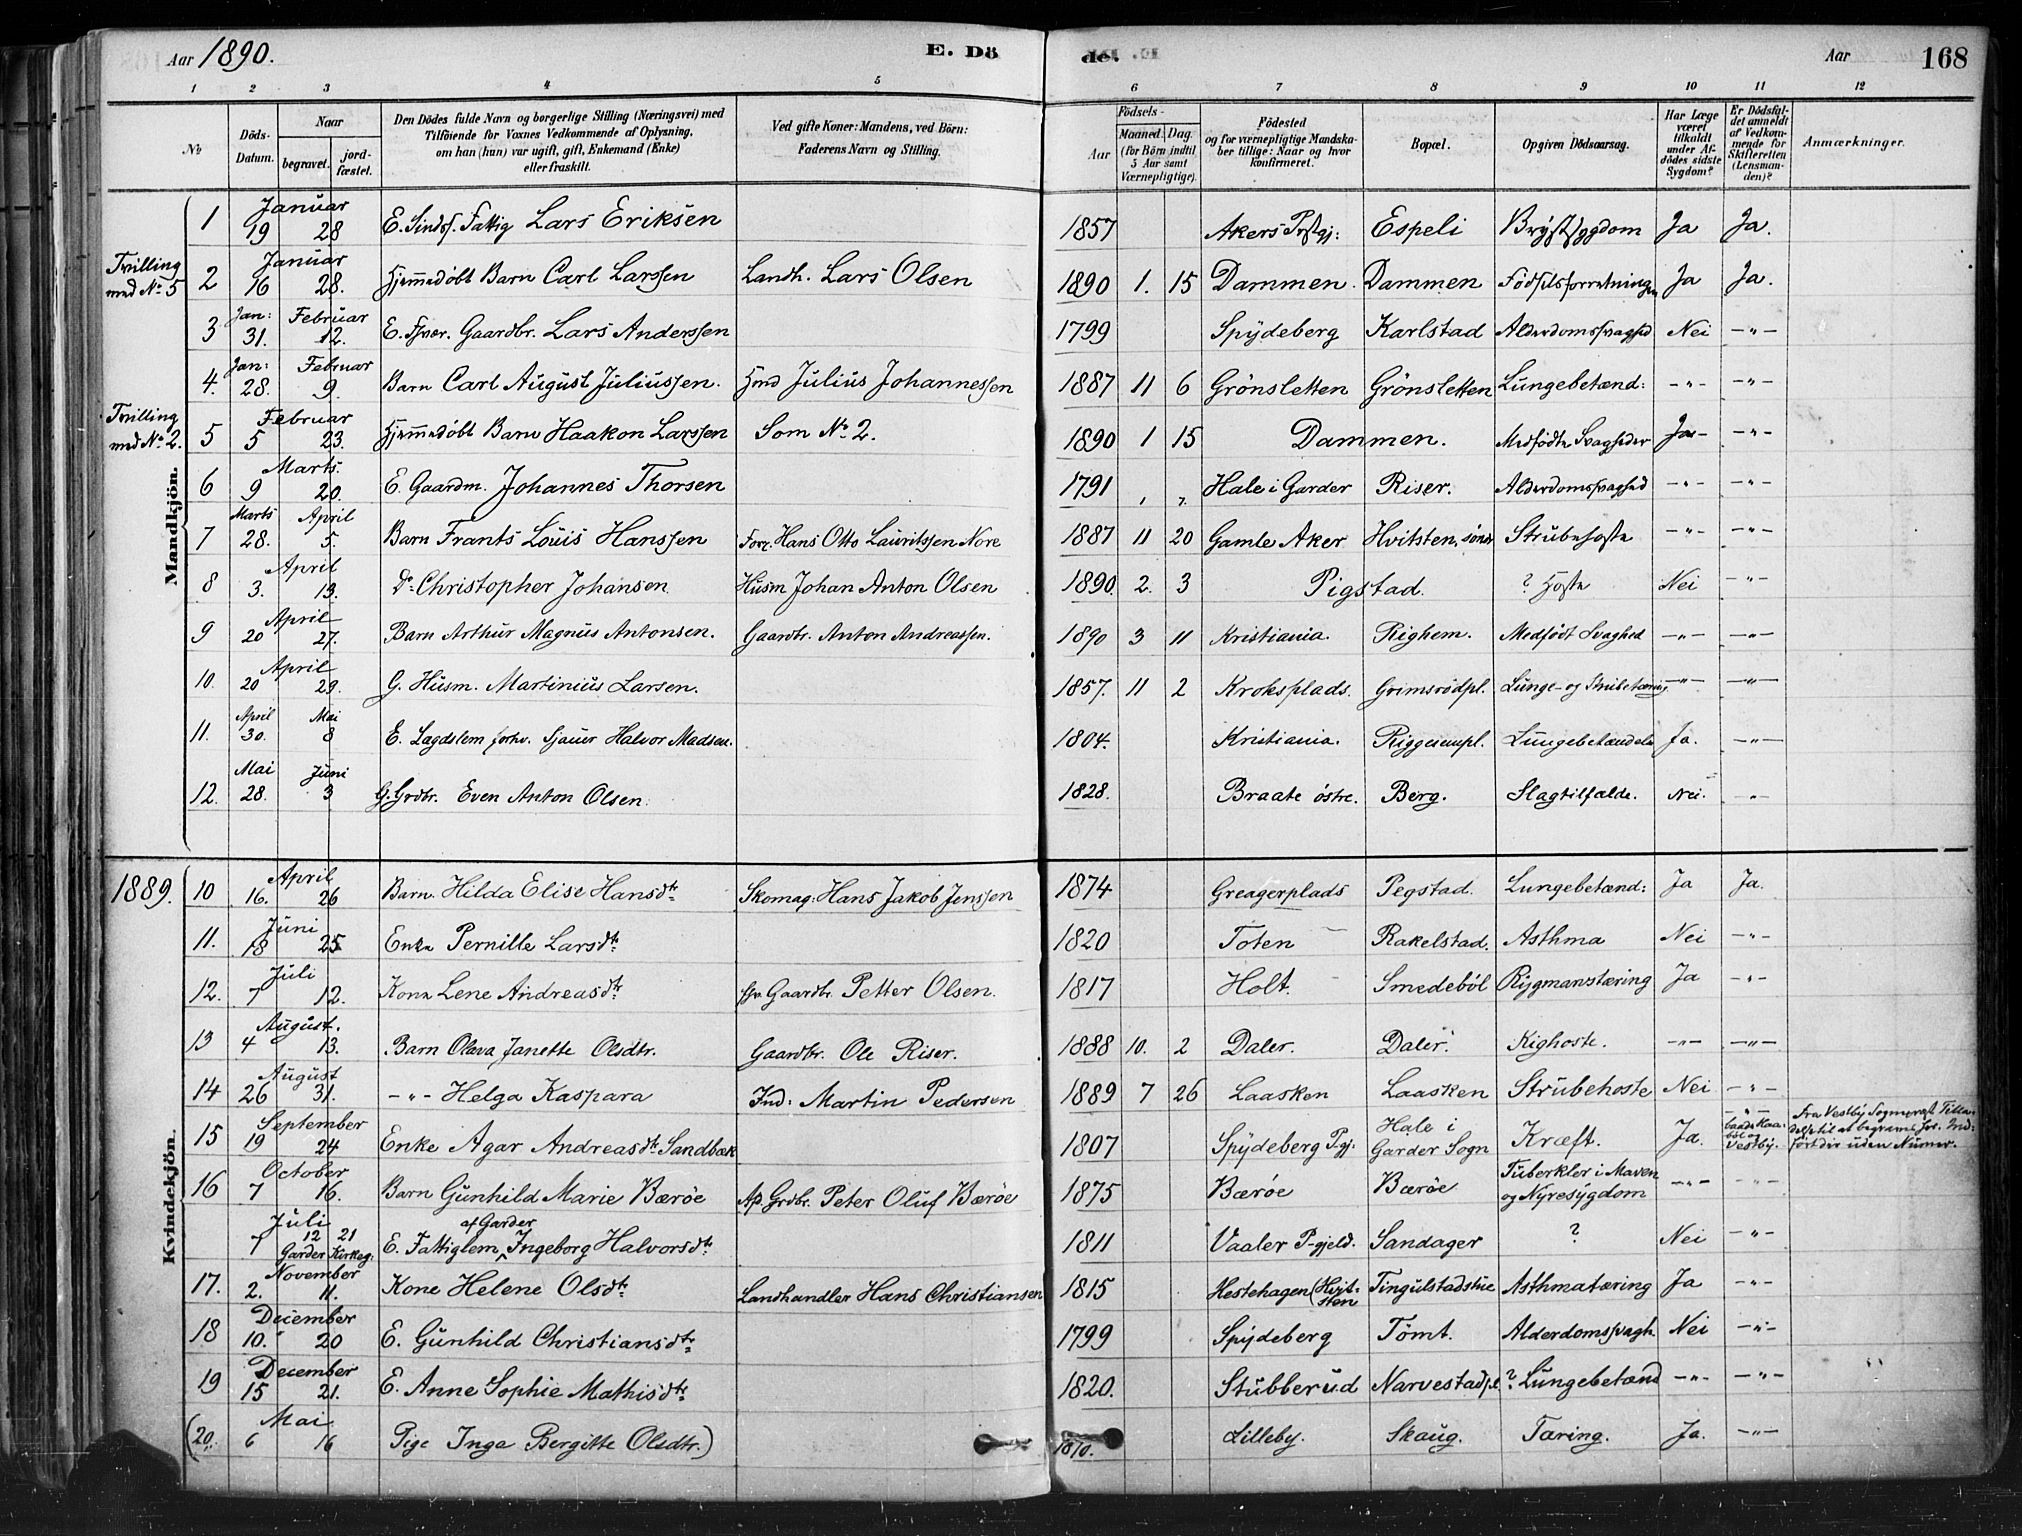 Aar 1890. E. Dö de. Aar 168
1 2 3 4 5 6 7 8 9 10 11 12
№ Döds-Datum. Naar begravet. jord-fæstet. Den Dödes fulde Navn og borgerlige Stilling (Næringsvei) med Tilföiende for Voxnes Vedkommende af Oplysning, om han (hun) var ugift, gift, Enkemand (Enke) eller fraskilt. Ved gifte Koner: Mandens, ved Börn: Faderens Navn og Stilling. Födsels- Aar Maaned. Dag. (for Börn indtil 5 Aar samt Værnepligtige). Födested og for værnepligtige Mandskaber tillige: Naar og hvor konfirmeret. Bopæl. Opgiven Dödsaarsag. Har Læge været tilkaldt under Afdödes sidste Sygdom? Er Dödsfaldet anmeldt af Vedkommende for Skifteretten (Lensmanden)? Anmærkninger.
Mandkjön.
1 Januar 19 28 E. Sindss. Fattig Lars Eriksen 1857 Akers Prstgj: Espeli Brystsygdom Ja Ja.
Tvilling med No 5 2 Januar 16 28. Hjemmedøbt Barn Carl Larssen Landh. Lars Olsen 1890 1. 15 Dammen. Dammen Födselsforretningen Ja Ja.
3 Jan: 31. Februar 12. E. Fhvær. Gaardbr. Lars Anderssen 1799 Spydeberg Karlstad Alderdomssvaghed Nei -"-
4. Jan: 28. Februar 9. Barn Carl August Juliussen. Hmd Julius Johannessen 1887 11 6 Grönsletten Grönsletten Lungebetænd: -"- -"-
Tvilling med No 2. 5 Februar 5 23. Hjemmedøbt Barn Haakon Larssen Som No 2. 1890 1 15 Dammen. Medfödte Svagheder Ja- -"-
6 Marts. 9 20. E. Gaardm. Johannes Thorsen 1791 Hale i Garder Riser. Alderdomssvaghed -"- -"-
7 Marts 28. April 5. Barn Frants Louis Hanssen Forr. Hans Otto Lauritssen Nore 1887 11 20 Gamle Aker Hvitsten, søndr Strubehoste -"- -"-
8 April 3. 13. Do Christopher Johansen. Husm Johan Anton Olsen 1890. 2. 3 Pigstad. ? Hoste Nei -"-
9 April 20 27. Barn Arthur Magnus Antonsen. Gaardbr. Anton Andreassen. 1890 3 11 Kristiania. Righem. Medfødt Svaghed -"- -"-
10. April 20 29. G. Husm. Martinius Larsen. 1857. 11 2 Kroksplads. Grimsrødpl. Lunge- og Strubetæring -"- -"-
11. April 30. Mai 8 E. Lagdslem forhv. Sjauer Halvor Madsen. 1804. Kristiania. Riggesumpl. Lungebetændelse Ja. -"-
12. Mai 28. Juni 3 G. Grdbr. Even Anton Olsen. 1828. Braate östre. Berg. Slagtilfælde. Nei. -"-
1889.
Kvindekjön.
10 April 16. 26 Barn. Hilda Elise Hansdtr. Skomag: Hans Jakob Jenssen 1874 Greagerplads Pegstad. Lungebetænd: Ja Ja.
11. Juni 18 25 Enke Pernille Larsdtr. 1820 Toten Rakelstad. Asthma Nei -"-
12. Juli 7 12. Kone Lene Andreasdtr. fhv. Gaardbr. Petter Olsen. 1817 Holt. Smedeböl Rygmarvstæring Ja -"-
13 August. 4 13. Barn Olava Janette Olsdtr. Gaardbr. Ole Riser. 1888 10. 2 Daler. Daler. Kighoste. -"- -"-
14 August 26 31. -"- Helga Kaspara Ind: Martin Pedersen 1889 7 26 Laasken Laasken Strubehoste Nei -"-
15 September 19 24 Enke Agar Andreasdtr. Sandbæk 1807 Spydeberg P.gj. Hale i Garder Sogn Kræft. Ja. -"- baade Kaaböl og Vestby. Fra Vestby Sogneprest Tilladelse til at begraves her. Indført der uden Numer.
16 October 7 16. Barn Gunhild Marie Bærøe Grdbr. Peter Oluf Bærøe 1875 Bærøe Bærøe Tuberkler i Maven og Nyresygdom -"- -"-
Juli 7 12 21 Garder Kirkeg: E. Fattiglem af Garder Ingeborg Halvorsdtr. 1811 Vaaler P-gjeld. Sandager ? Nei -"-
17. November 2. 11. Kone Helene Olsdtr. Landhandler Hans Christiansen 1815 Hestehagen (Hvitsten Tingulstadstue Asthmatæring Ja -"-
18 December 10. 20 E. Gunhild Christiansdtr. 1799 Spydeberg Tömt. Alderdomssvagh. Nei -"-
19 December 15 21. E. Anne Sophie Mathisdtr. 1820. Stubberud Narvestadpl. ? Lungebetænd -"- -"-
(20. Mai 6 16 Pige Inga Bergitte Olsdtr.) 1870. Lilleby. Skaug. Tæring. Ja. -"-